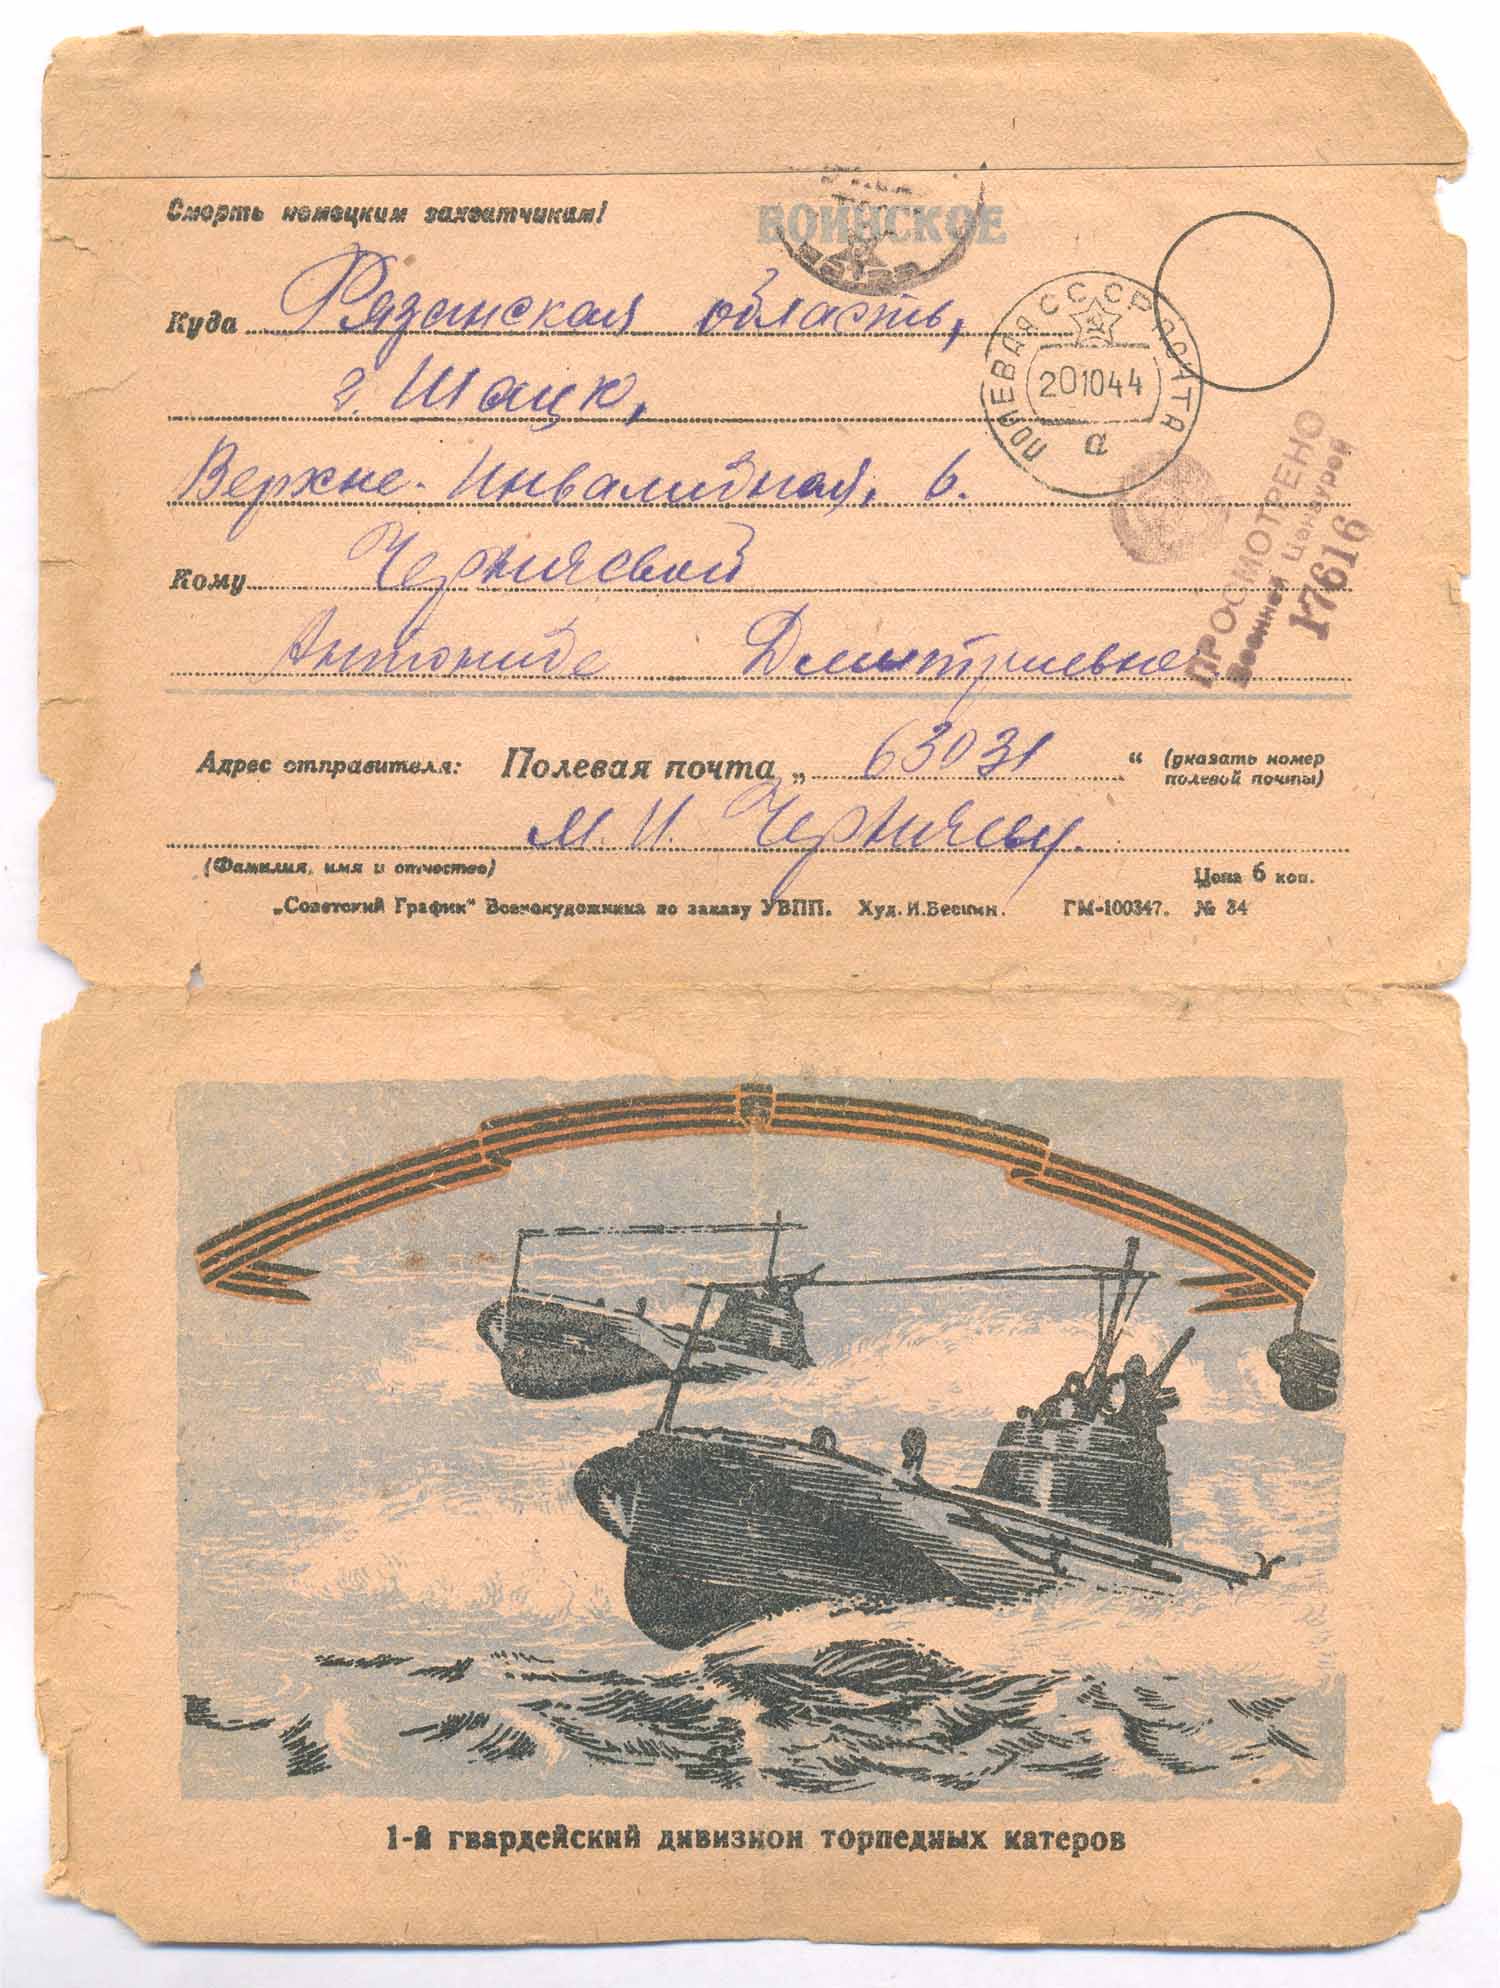 Смерть немецким захватчикам!
ВОИНСКОЕ
Куда Рязанская область,
г. Шацк,
Верхне-Инвалидная, 6.
Кому Черняевой
Антониде Дмитриевне
ПОЛЕВАЯ ПОЧТА
СССР
201044
а
ПРОСМОТРЕНО
Военной Цензурой
17616
Адрес отправителя: Полевая почта „ 63031 “ (указать номер
полевой почты)
М. И. Черняевы.
(Фамилия, имя и отчество)
Цена 6 коп.
„Советский График“ Всекохудожника по заказу УВПП. Худ. И. Бескин. ГМ-100347. № 34
1-й гвардейский дивизион торпедных катеров